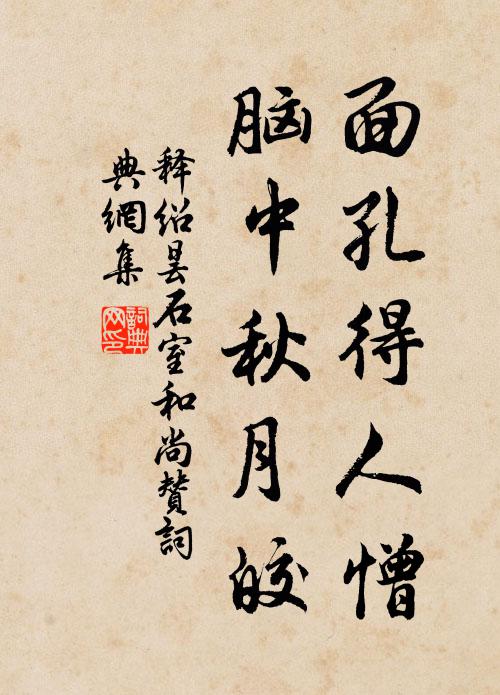 面孔得人憎
脑中秋月皎
释绍昙石室和尚赞詞
典網集
詞典
网印